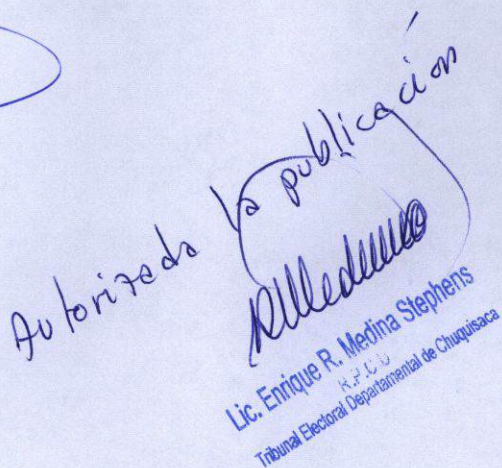 Autorizada la publicación
Lic. Enrique R. Medina Stephens
Tribunal Electoral Departamental de Chuquisaca